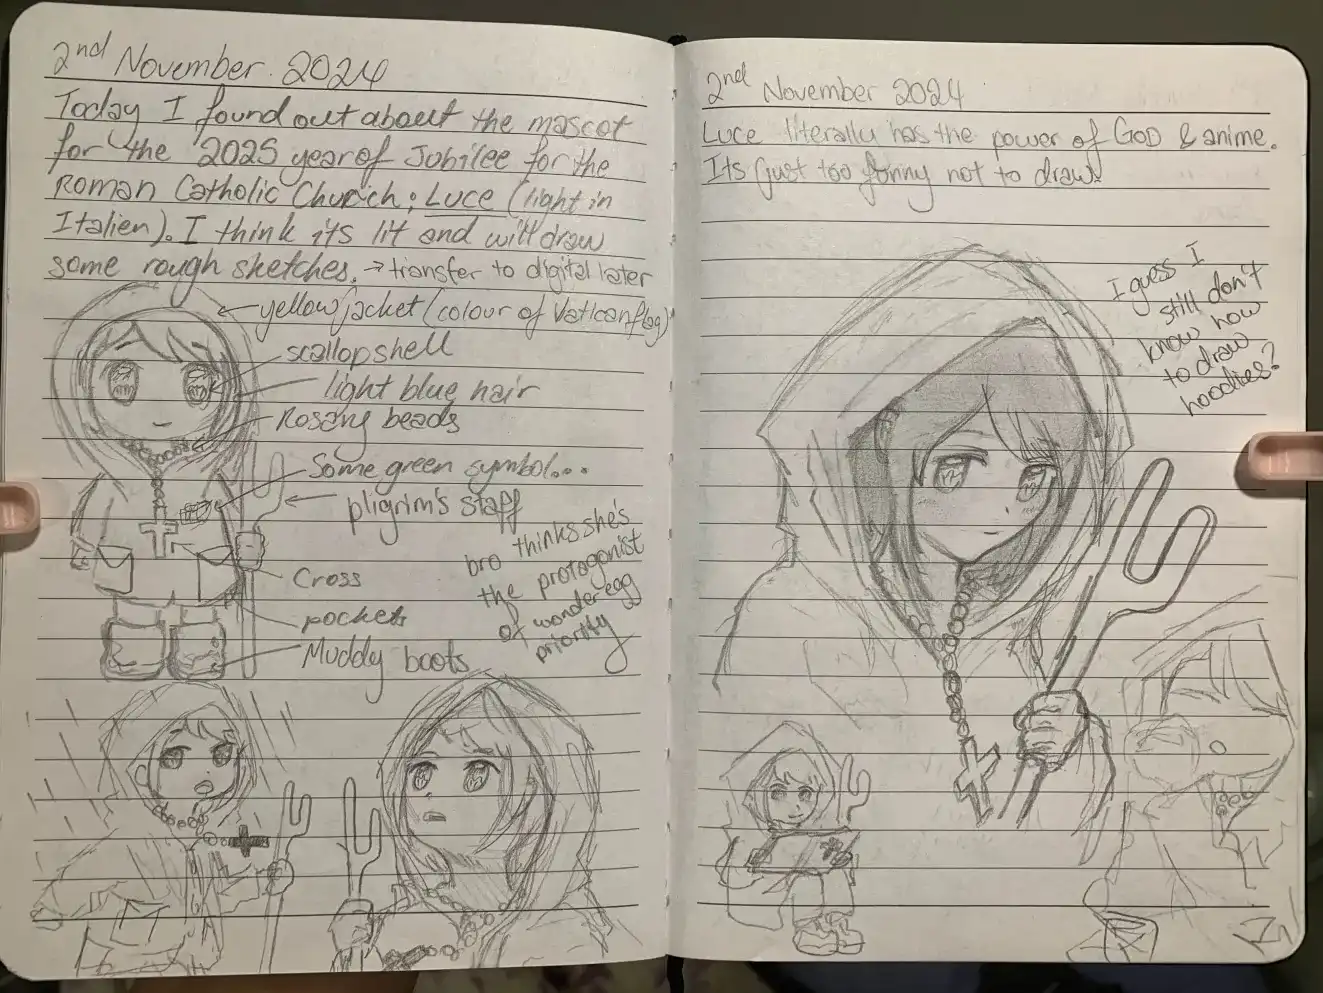 2nd November 2024
Today I found out about the mascot
for the 2025 year of Jubilee for the
Roman Catholic Church; Luce (light in
Italien). I think its lit and will draw
some rough sketches. → transfer to digital later
yellow jacket (colour of Vatican flag)
scallop shell
light blue hair
Rosary beads
Some green symbol...
pligrim's staff
Cross
pockets
Muddy boots
bro thinks she's
the protogonist
of wonder egg
priority
2nd November 2024
Luce literally has the power of GOD & anime.
Its just too funny not to draw
I guess I
still don't
know how
to draw
hoodies?